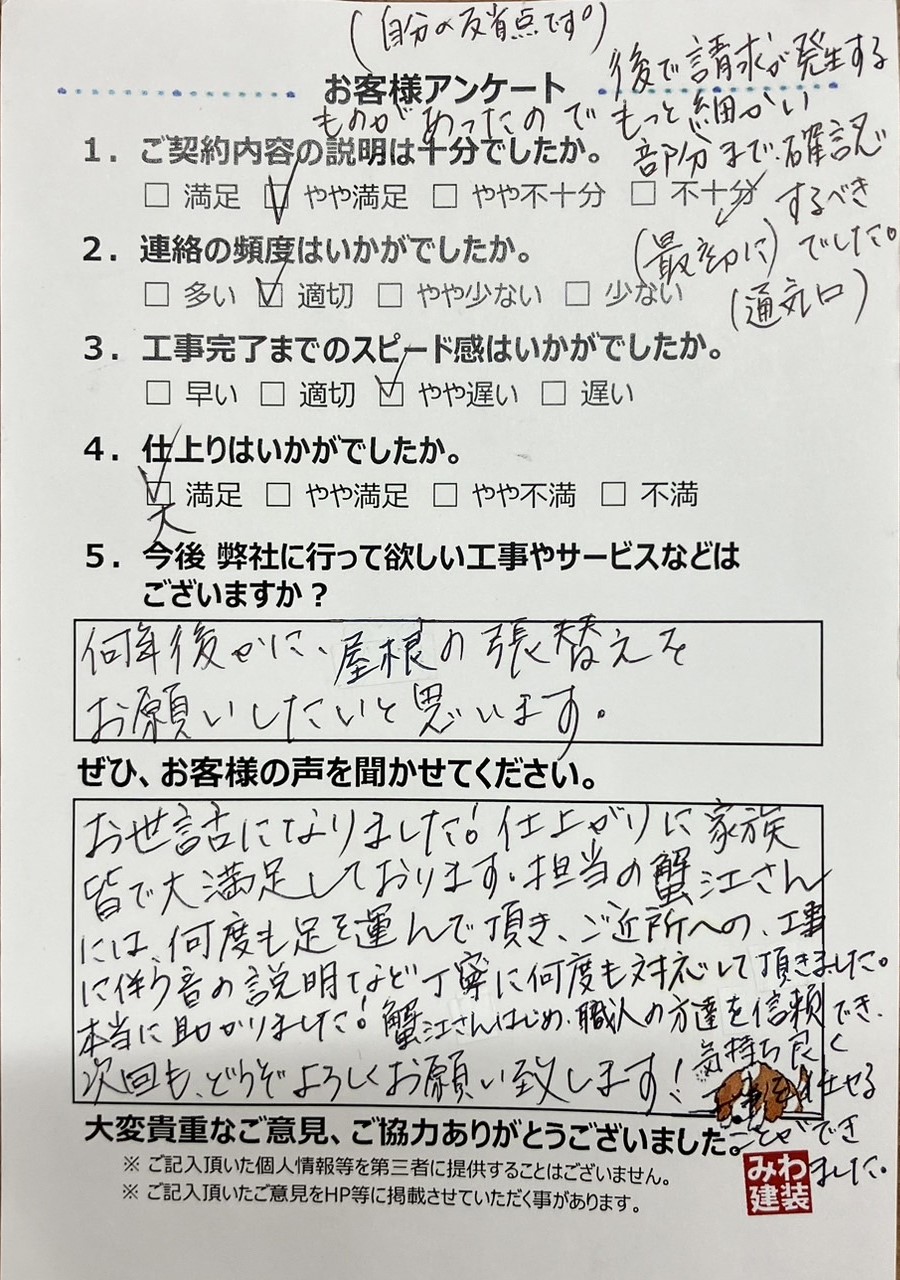 (自分の反省点です。)
後で請求が発生する
お客様アンケート
ものがあったのでもっと細かい
1. ご契約内容の説明は十分でしたか。
部分まで、確認
□ 満足 ☑ やや満足 □ やや不十分 □ 不十分
するべき
2. 連絡の頻度はいかがでしたか。
(最初に)でした。
□ 多い ☑ 適切 □ やや少ない □ 少ない
(通気口)
3. 工事完了までのスピード感はいかがでしたか。
□ 早い □ 適切 ☑ やや遅い □ 遅い
4. 仕上りはいかがでしたか。
☑ 満足 □ やや満足 □ やや不満 □ 不満
大
5. 今後 弊社に行って欲しい工事やサービスなどは
ございますか?
何年後かに、屋根の張替えを
お願いしたいと思います。
ぜひ、お客様の声を聞かせてください。
お世話になりました!仕上がりに家族
皆で大満足しております。担当の蟹江さん
には、何度も足を運んで頂き、ご近所への、工事
に伴う音の説明など丁寧に何度も対応して頂きました。
本当に助かりました!蟹江さんはじめ、職人の方達を信頼でき、
気持ち良く
次回も、どうぞよろしくお願い致します!
工事を任せる
大変貴重なご意見、ご協力ありがとうございました。
ことができ
※ ご記入頂いた個人情報等を第三者に提供することはございません。
ました。
※ ご記入頂いたご意見をHP等に掲載させていただく事があります。
みわ
建装